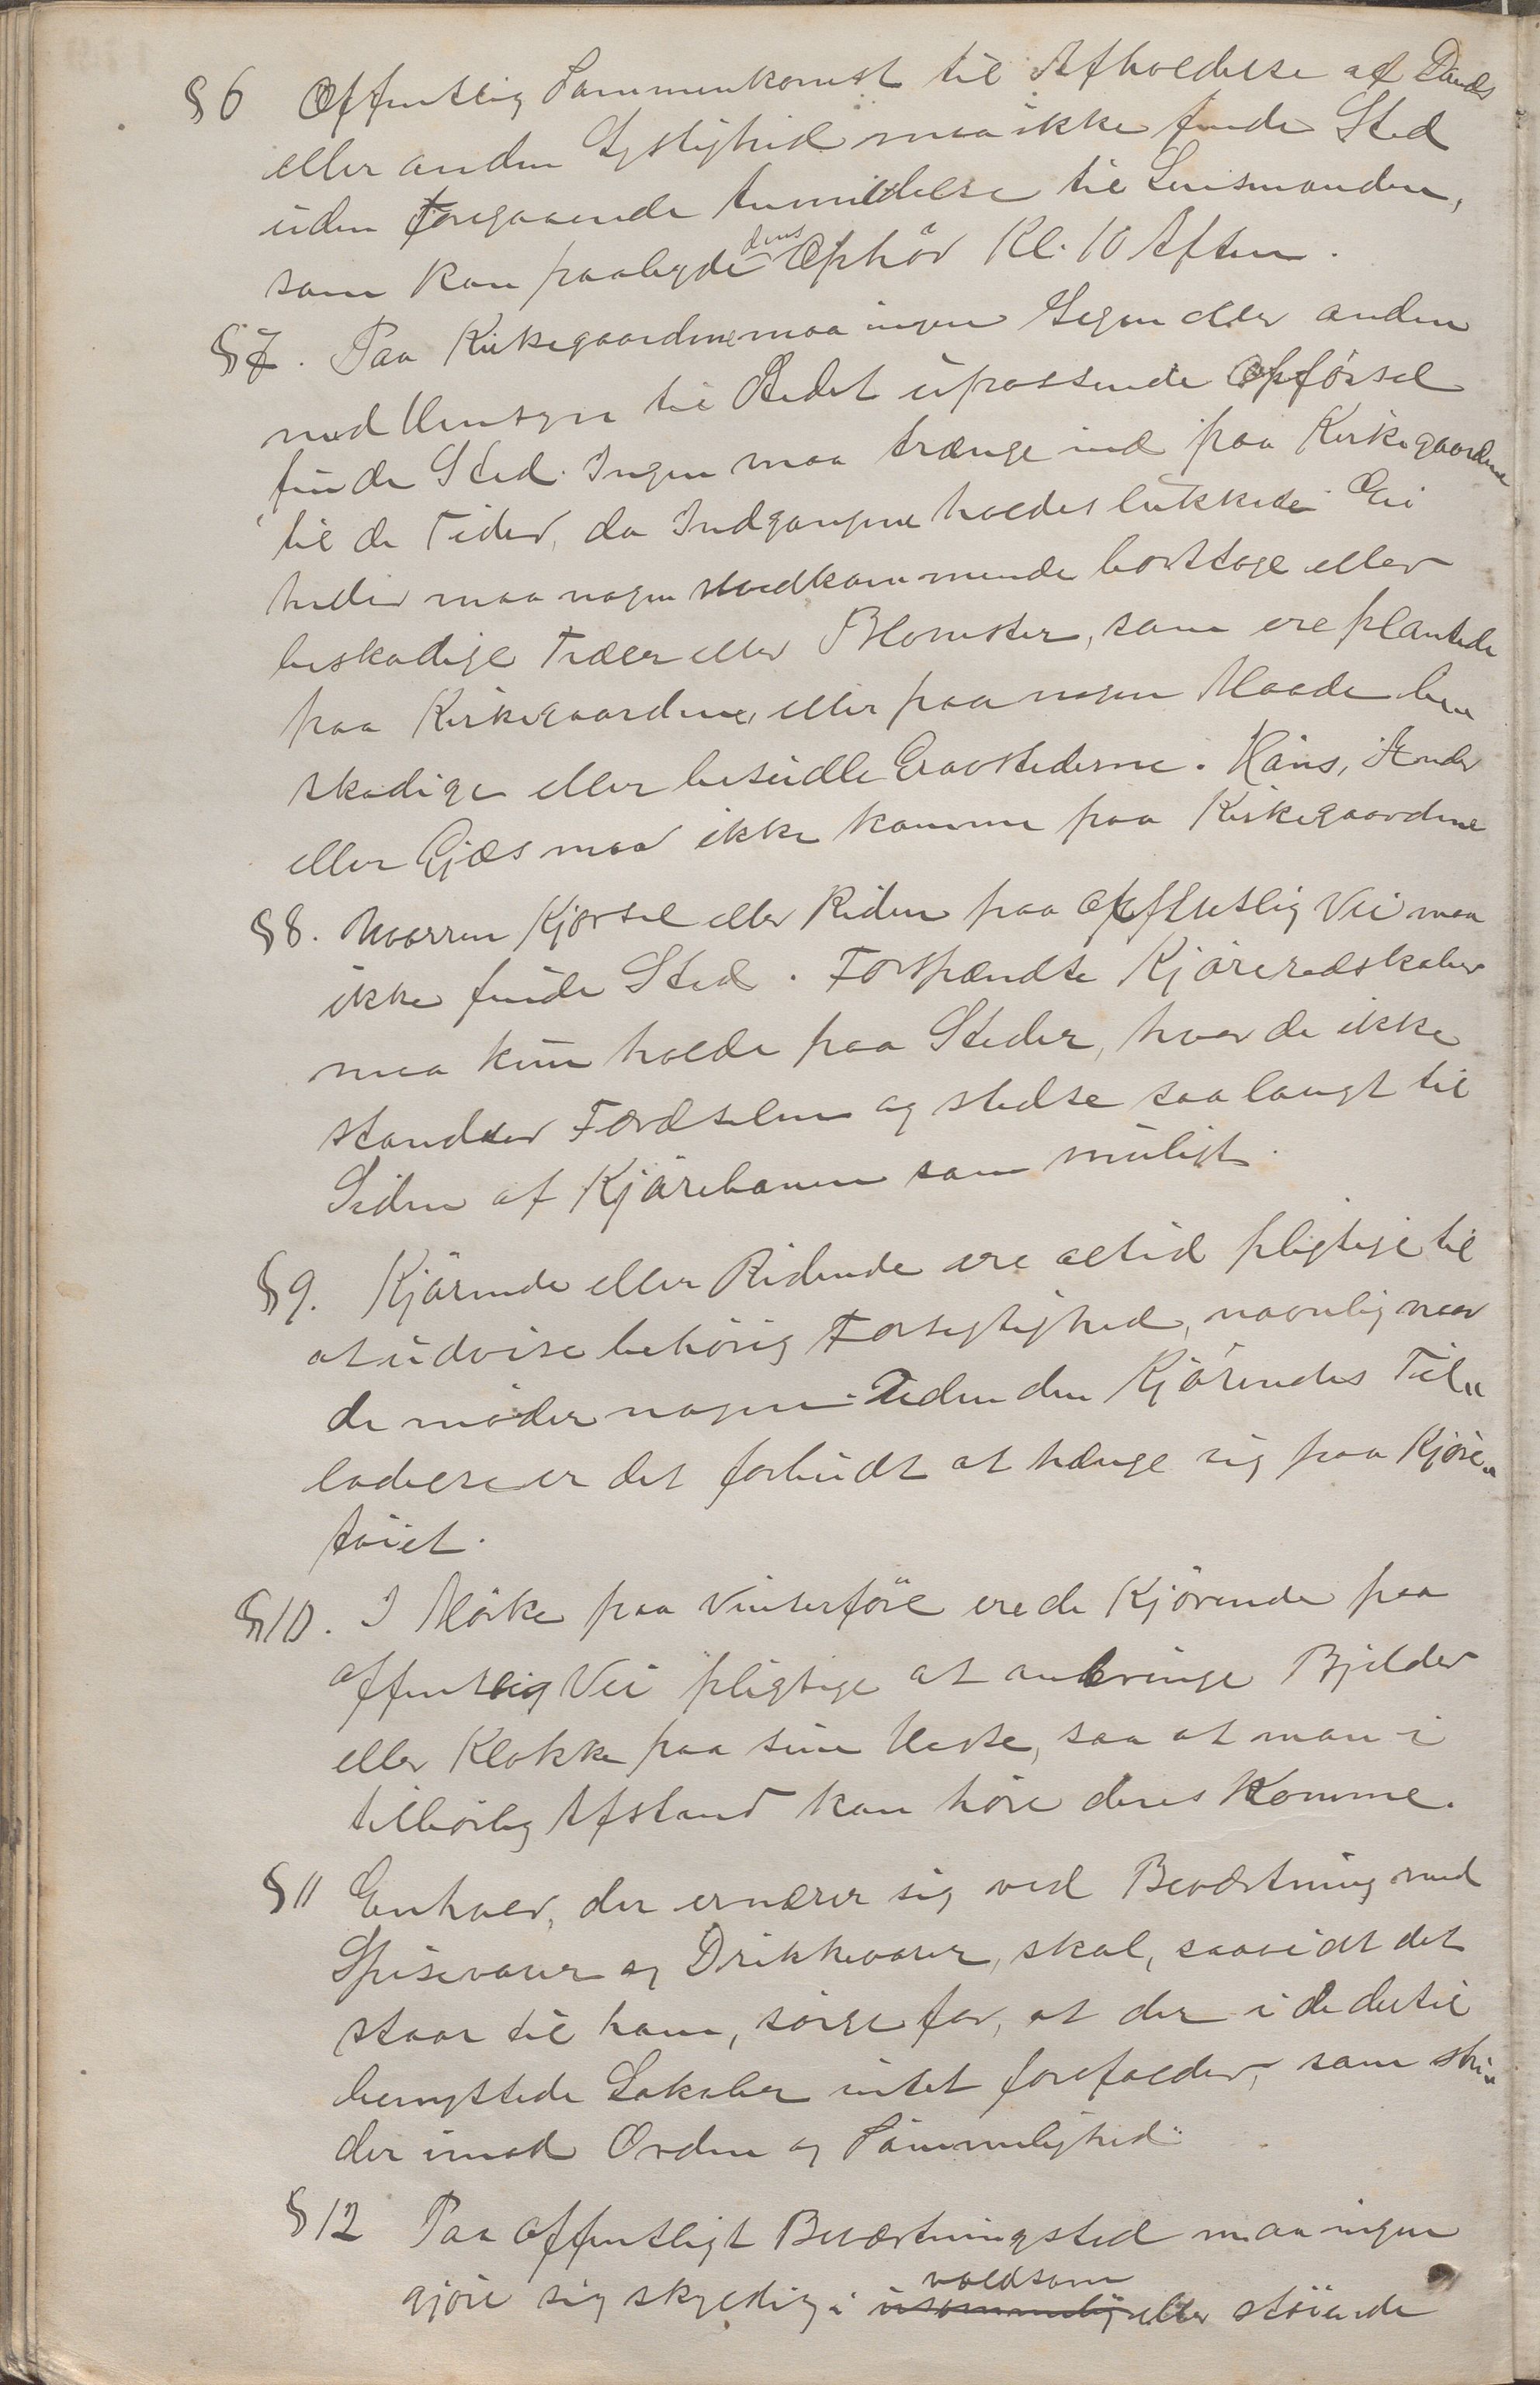 § 6 Offentlig Sammenkomst til Afholdelse af Dands
eller anden Lystighed maa ikke finde Sted
uden foregaaende Anmeldelse til Lensmanden,
som kan paabyde dens Ophör Kl. 10 Aften.
§ 7. Paa Kirkegaardene maa ingen Legen eller anden
med Hensyn til Stedet upassende Opförsel
finde Sted. Ingen maa trænge ind paa Kirkegaardene
til de Tider, da Indgangene holdes lukkede. Ei
heller maa nogen uvedkommende borttage eller
beskadige Træer eller Blomster, som ere plantede
paa Kirkegaardene, eller paa nogen Maade be„
skadige eller besudle Gravstederne. Høns, Ænder
eller Gjæs maa ikke komme paa Kirkegaardene
§ 8. Uvorren Kjørsel eller Riden paa offentlig Vei maa
ikke finde Sted. Forspændte Kjøreredskaber
maa kun holde paa Steder, hvor de ikke
standser Færdselen og stedse saa langt til
Siden af Kjørebanen som muligt.
§ 9. Kjørende eller Ridende ere altid pligtige til
at udvise behørig Forsigtighed, navnlig naar
de møder nogen. Uden den Kjørendes Til„
ladelse er det forbudt at hænge sig paa Kjøre„
tøiet.
§ 10. I Mørke paa Vinterføre ere de Kjørende paa
offentlig Vei pligtige at anbringe Bjelder
eller Klokke paa sine Heste, saa at man i
tilbørlig Afstand kan høre deres Komme.
§ 11 Enhver, der ernærer sig ved Beværtning med
Spisevarer og Drikkevarer, skal, saavidt det
staar til ham, sørge for, at der i de dertil
benyttede Lokaler intet forefalder, som stri„
der imod Orden og Sømmelighed.
§ 12 Paa offentligt Beværtningssted maa ingen
gjøre sig skyldig i usømmelig voldsom eller støiende